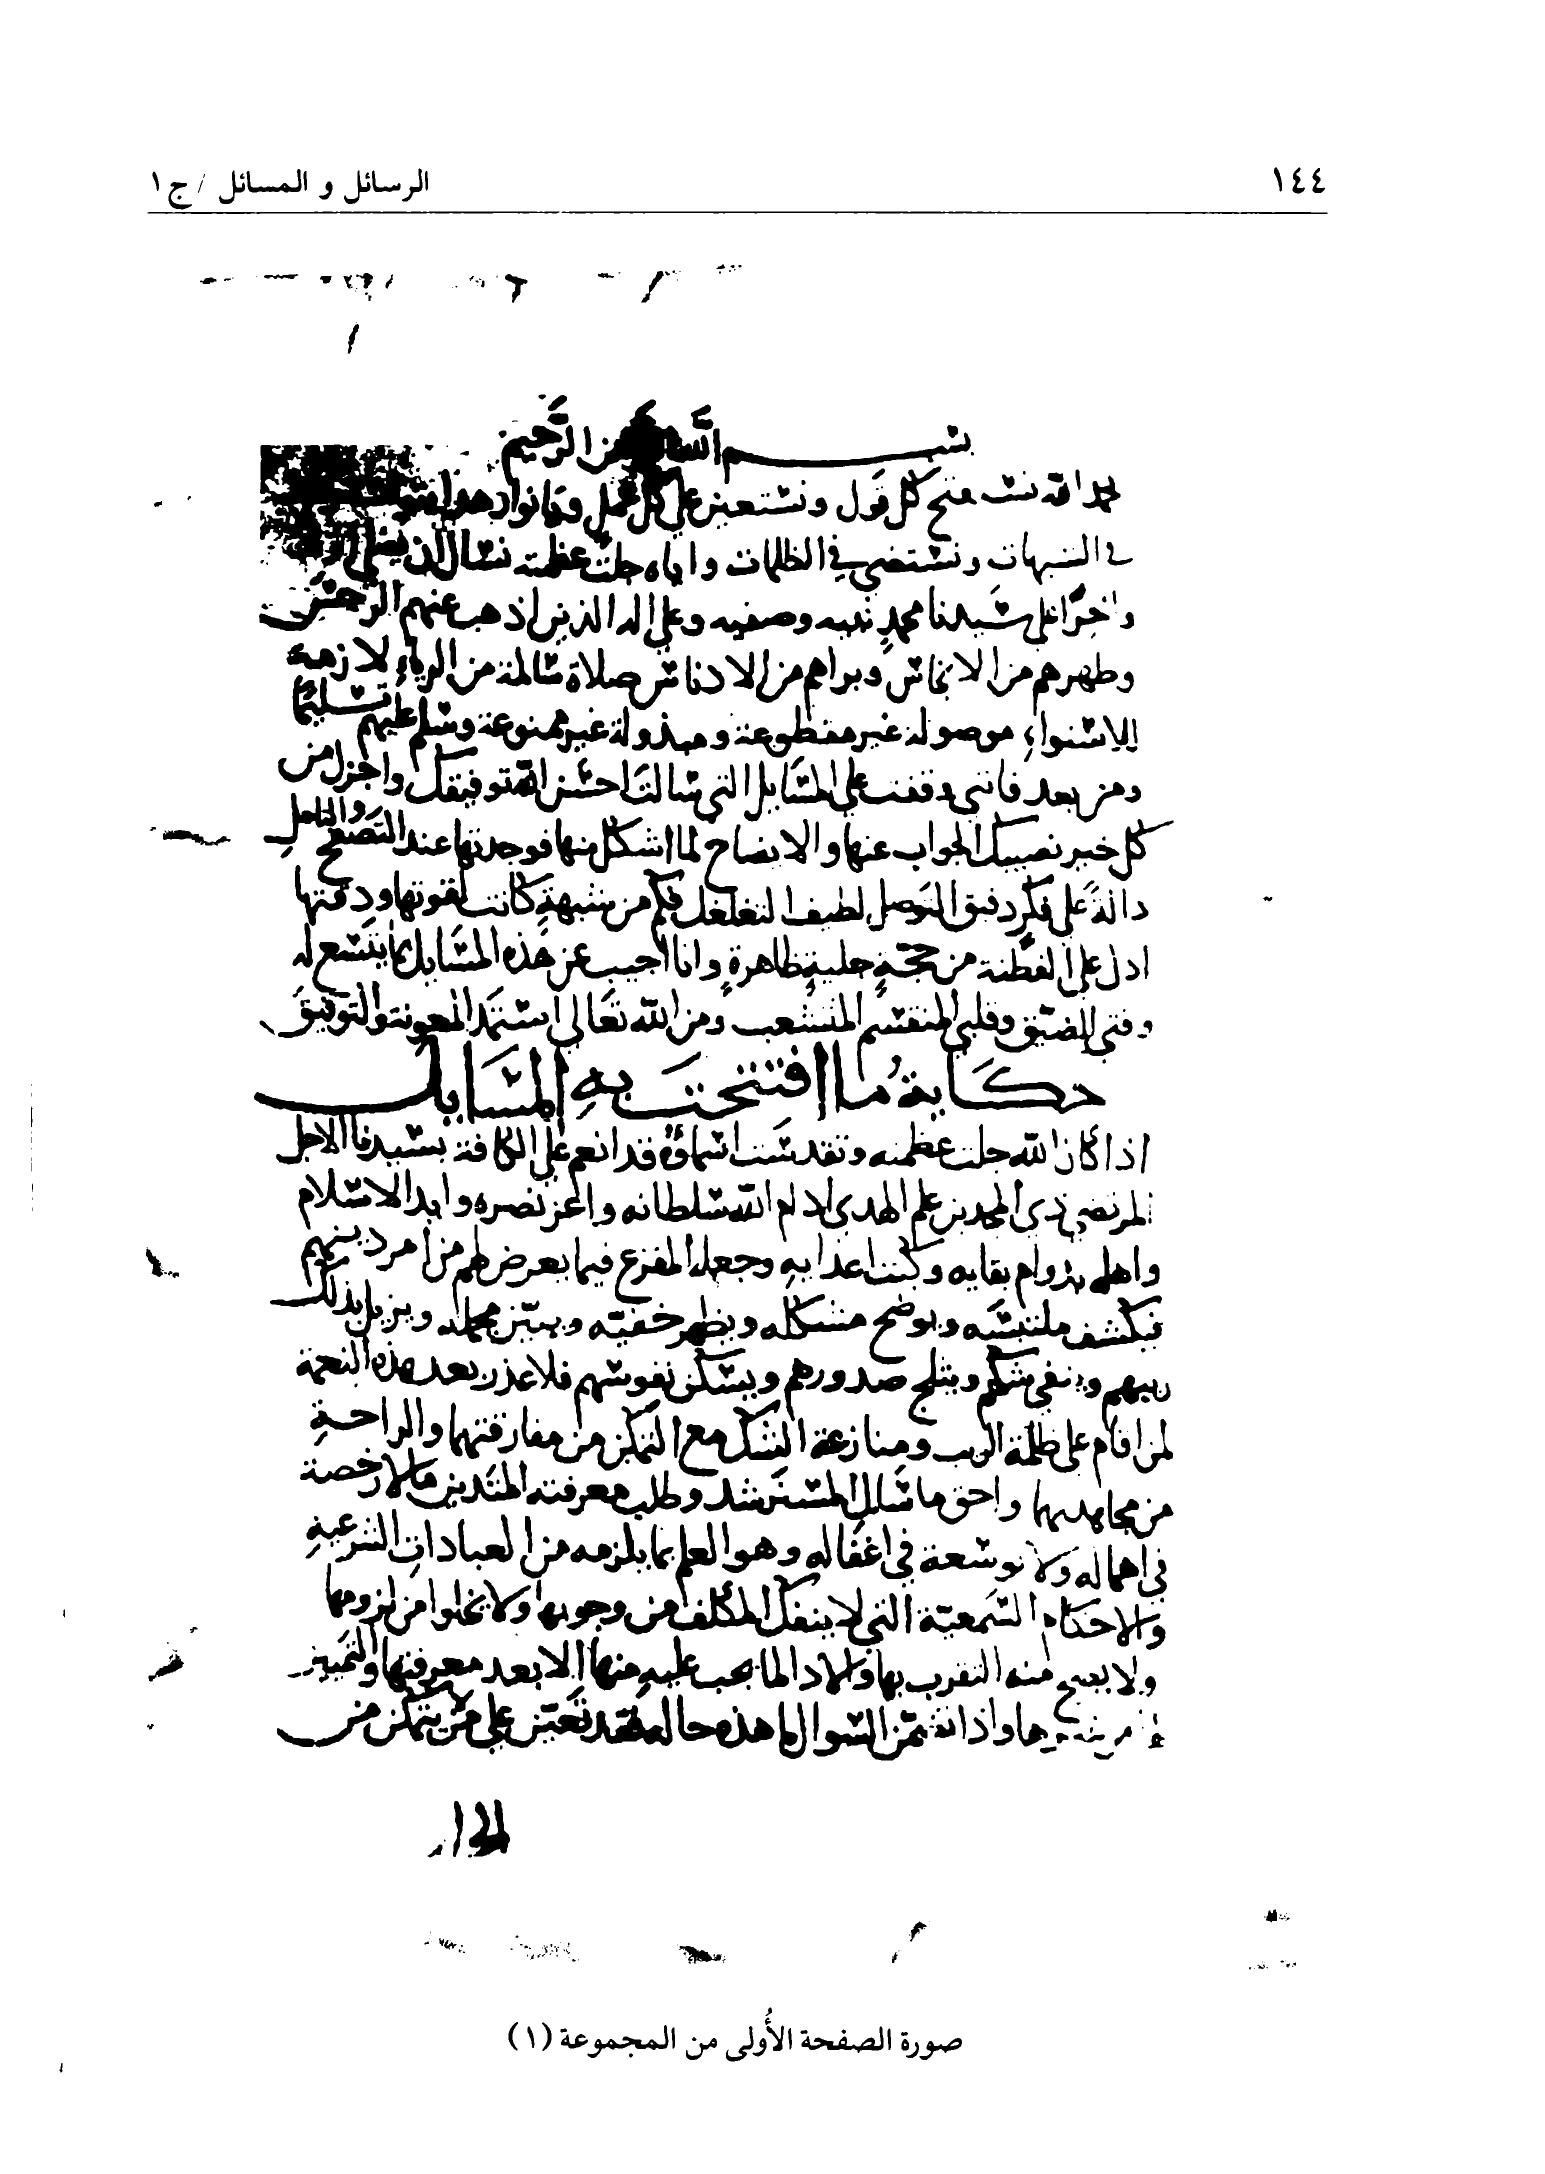 ١٤٤
الرسائل و المسائل / ج١
بسم الله الرحمن الرحيم
بحمد الله نستفتح كل قول ونستعين على كل عمل وبانوار هدايته
في الشبهات ونستضي في الظلمات واياه جلت عظمته نسال ان يصلي اولا
واخرا على سيدنا محمد نبيه وصفيه وعلى اله الذين اذهب عنهم الرجس
وطهرهم من الانجاس وبراهم من الادناس صلاة سالمة من الرياء لازمة
للاستواء موصولة غير مقطوعة ومبذولة غير ممنوعة وسلم عليهم تسليما
ومن بعد فانني وقفت على المسايل التي سالت احسن الله توفيقك واجزل من
كل خير نصيبك الجواب عنها والايضاح لما اشكل منها فوجدتها عند التصفح والتامل
دالة على فكر دقيق التوصل لطيف التغلغل فكم من شبهة كانت لقوتها ودقتها
ادل على الفطنة من حجة جلية ظاهرة وانا اجيب عن هذه المسايل بما يتسع له
وقتي الضيق وقلبي المنقسم المتشعب ومن الله تعالى استمد المعونة والتوفيق
حكاية ما افتتحت به المسايل
اذا كان الله جلت عظمته وتقدست اسماؤه قد انعم على الكافة بسيدنا الاجل
المرتضى ذي المجدين علم الهدى ادام الله سلطانه واعز نصره وايد الاسلام
واهله بدوام بقايه وكبت اعدايه وجعله المفزع فيما يعرض لهم من امر دينهم
فيكشف ملتبسه ويوضح مشكله ويظهر خفيه ويبين مجمله ويزيل بذلك
ريبهم وينفي شكهم ويثلج صدورهم ويسكن نفوسهم فلا عذر بعد هذه النعمة
لمن اقام على ظلمة الريب ومنازعة الشك مع التمكن من مفارقتهما والراحة
من مجاهدتهما واحق ما سال المسترشد وطلب معرفته المتدين ما لا رخصة
في اهماله ولا توسعة في اغفاله وهو العلم بما يلزمه من العبادات الشرعية
والاحكام السمعية التي لا ينفك المكلف من وجوبها ولا يخلوا من لزومها
ولا يصح منه التقرب بها والاداء لما يجب عليه منها الا بعد معرفتها والتمييز
واذا تضمن السوال ما هذه حاله فقد تعين على من يتمكن من
صورة الصفحة الأُولى من المجموعة (١)